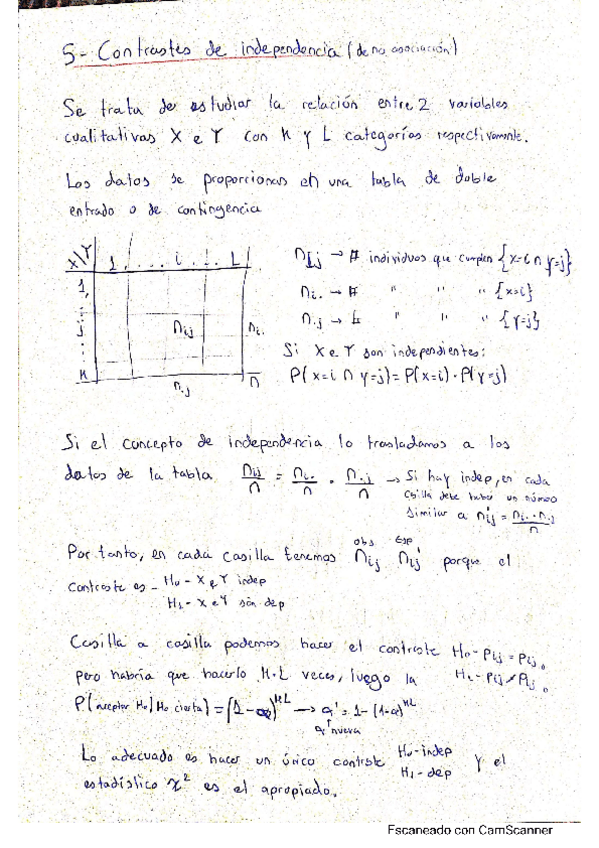 5- Contrastes de independencia (de no asociación)
Se trata de estudiar la relación entre 2 variables
cualitativas X e Y con K y L categorías respectivamente.
Los datos se proporcionan en una tabla de doble
entrada o de contingencia
X\Y 1 . . . . i . . . L
1
j
K
nij ni.
n.j n
nIj → # individuos que cumplen {x=i ∩ y=j}
ni. → # " " " {x=i}
n.j → # " " " {y=j}
Si X e Y son independientes:
P(x=i ∩ y=j) = P(x=i) · P(y=j)
Si el concepto de independencia lo trasladamos a los
datos de la tabla nij/n = ni./n · n.j/n → Si hay indep, en cada
casilla debe haber un número
similar a n'ij = ni. · n.j / n
obs Esp
Por tanto, en cada casilla tenemos nij n'ij porque el
contraste es - H0 - X e Y indep
H1 - X e Y son dep
Casilla a casilla podemos hacer el contraste H0 - Pij = Pij0
pero habría que hacerlo K·L veces, luego la H1 - Pij ≠ Pij0
P(aceptar H0 | H0 cierta) = (1-α)^KL → α' = 1-(1-α)^KL
α nueva
Lo adecuado es hacer un único contraste H0 - indep y el
H1 - dep
estadístico χ² es el apropiado.
Escaneado con CamScanner